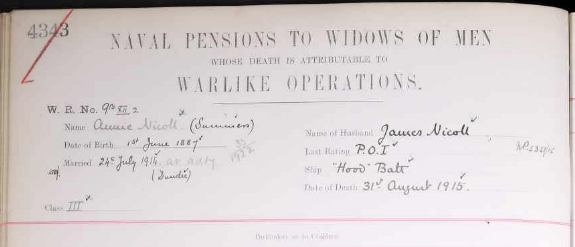 4343
NAVAL PENSIONS TO WIDOWS OF MEN
WHOSE DEATH IS ATTRIBUTABLE TO
WARLIKE OPERATIONS.
W. R. No.
Name Annie Nicoll (Summers)
Date of Birth 1st June 1887
Married 24th July 1914
(Dundee)
Class III
Name of Husband James Nicoll
Last Rating P.O.I
Ship "Hood" Batt
Date of Death 31st August 1915.
Particulars as to Children